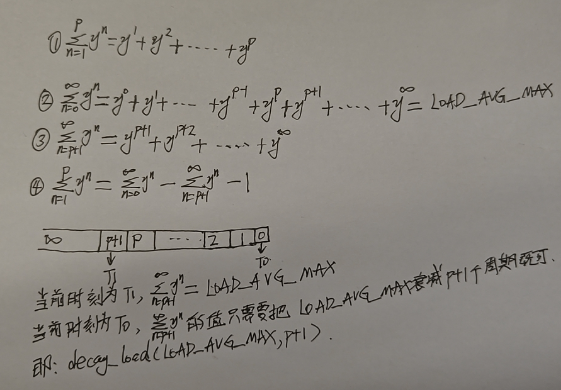 ① $\sum_{n=1}^{p} y^n = y^1 + y^2 + \cdots + y^p$
② $\sum_{n=0}^{\infty} y^n = y^0 + y^1 + \cdots + y^{p-1} + y^p + y^{p+1} + \cdots + y^{\infty} = LOAD\_AVG\_MAX$
③ $\sum_{n=p+1}^{\infty} y^n = y^{p+1} + y^{p+2} + \cdots + y^{\infty}$
④ $\sum_{n=1}^{p} y^n = \sum_{n=0}^{\infty} y^n - \sum_{n=p+1}^{\infty} y^n - 1$
∞ p+1 p ... 2 1 0
T1 T0
当前时刻为T1, $\sum_{n=p+1}^{\infty} y^n = LOAD\_AVG\_MAX$
当前时刻为T0, $\sum_{n=p+1}^{\infty} y^n$ 的值只需要把 LOAD_AVG_MAX衰减p+1个周期既可.
即: decay_load(LOAD_AVG_MAX, p+1).